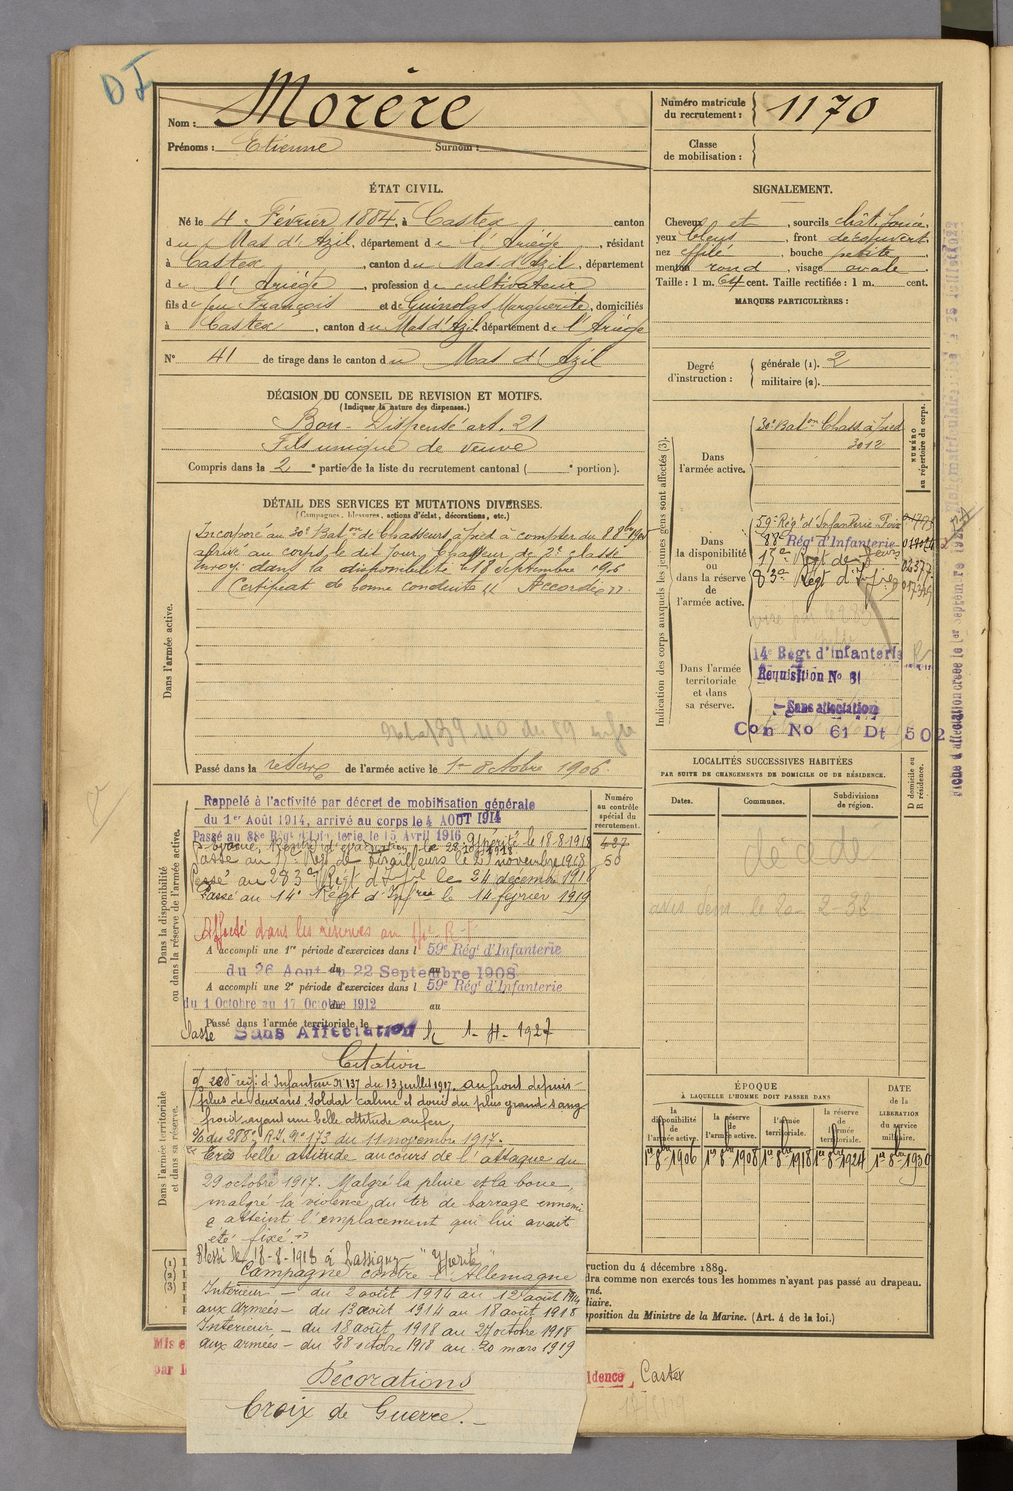 D I
Nom : Morère
Prénoms : Etienne Surnom :
Numéro matricule du recrutement : 1170
Classe de mobilisation :
ÉTAT CIVIL.
Né le 4 Février 1884, à Castex, canton
du Mas d'Azil, département de l'Ariège, résidant
à Castex, canton du Mas d'Azil, département
de l'Ariège, profession de cultivateur
fils de feu François et de Guinolas Marguerite, domiciliés
à Castex, canton du Mas d'Azil département de l'Ariège
N° 41 de tirage dans le canton du Mas d'Azil
SIGNALEMENT.
Cheveux et, sourcils chât. foncé,
yeux bleus, front découvert,
nez effilé, bouche petite,
menton rond, visage ovale
Taille : 1 m. 64 cent. Taille rectifiée : 1 m. cent.
MARQUES PARTICULIÈRES :
Degré d'instruction : générale (1). 2
militaire (2).
DÉCISION DU CONSEIL DE REVISION ET MOTIFS.
(Indiquer la nature des dispenses.)
Bon - Dispensé art. 21
Fils unique de veuve
Compris dans la 2e partie de la liste du recrutement cantonal ( e portion).
DÉTAIL DES SERVICES ET MUTATIONS DIVERSES.
(Campagnes, blessures, actions d'éclat, décorations, etc.)
Dans l'armée active.
Incorporé au 30e Baton de Chasseurs à pied à compter du 8 8bre 1905
arrivé au corps le dit jour, Chasseur de 2e classe
Envoyé dans la disponibilité le 18 Septembre 1906
Certificat de bonne conduite "Accordé".
Passé dans la réserve de l'armée active le 1er Octobre 1906.
Indication des corps auxquels les jeunes gens sont affectés (3).
NUMÉRO au répertoire du corps.
Dans l'armée active.
30e Baton Chass. à Pied
3012
Dans la disponibilité ou dans la réserve de l'armée active.
59e Régt d'Infanterie Foix
88e Régt d'Infanterie
Dans l'armée territoriale et dans sa réserve.
14e Régt d'infanterie
Requisition No 61
Sans affectation
Con No 61 Dt 502
LOCALITÉS SUCCESSIVES HABITÉES
PAR SUITE DE CHANGEMENTS DE DOMICILE OU DE RÉSIDENCE.
D domicile ou R résidence.
Dates. Communes. Subdivisions de région.
décédé
avis Gend. le 20-2-32
Dans la disponibilité ou dans la réserve de l'armée active.
Numéro au contrôle spécial du recrutement.
Rappelé à l'activité par décret de mobilisation générale
du 1er Août 1914, arrivé au corps le 4 AOUT 1914
Passé au 88e Régt d'Infanterie le 15 Avril 1916
437
50
Passé au Régt de Tirailleurs le 21 novembre 1918
Passé au 283e Régt d'Infie le 24 décembre 1918
Passé au 14e Régt d'Infrie le 14 février 1919
Affecté dans les réserves au
A accompli une 1re période d'exercices dans l 59e Régt d'Infanterie
du 26 Aout au 22 Septembre 1908
A accompli une 2e période d'exercices dans l 59e Régt d'Infanterie
du 1 Octobre au 17 Octobre 1912 au
Passé dans l'armée territoriale le
Classé Sans Affectation le 1-4-1927
Dans l'armée territoriale et dans sa réserve.
Citation
Régt d'Infanterie N° 137 du 13 juillet 1917. au front depuis
plus de deux ans, soldat calme et doué du plus grand sang
froid ayant une belle attitude au feu,
o/ du 288e R.I. N° 173 du 11 novembre 1917.
Très belle attitude au cours de l'attaque du
29 octobre 1917. Malgré la pluie et la boue,
malgré la violence du tir de barrage ennemi
a atteint l'emplacement qui lui avait
été fixé."
Blessé le 18-8-1918 à Lassigny "Ypérité"
Campagne contre l'Allemagne
Intérieur - du 2 août 1914 au 12 août 1914
aux armées - du 13 août 1914 au 18 août 1918
Intérieur - du 18 août 1918 au 27 octobre 1918
aux armées - du 28 octobre 1918 au 20 mars 1919
Décorations
Croix de Guerre. -
ÉPOQUE
À LAQUELLE L'HOMME DOIT PASSER DANS
la disponibilité de l'armée active.
la réserve de l'armée active.
l'armée territoriale.
la réserve de l'armée territoriale.
DATE de la LIBERATION du service militaire.
1er 8bre 1906 1er 8bre 1908 1er 8bre 1918 1er 8bre 1924 1er 8bre 1930
(1)
(2)
(3)
ruction du 4 décembre 1889.
dra comme non exercés tous les hommes n'ayant pas passé au drapeau.
rné.
iliaire.
sposition du Ministre de la Marine. (Art. 4 de la loi.)
Mis e
par l
idence Castex